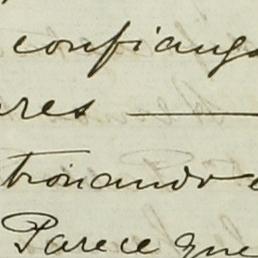 confiang
res —
trionando e
Parece que